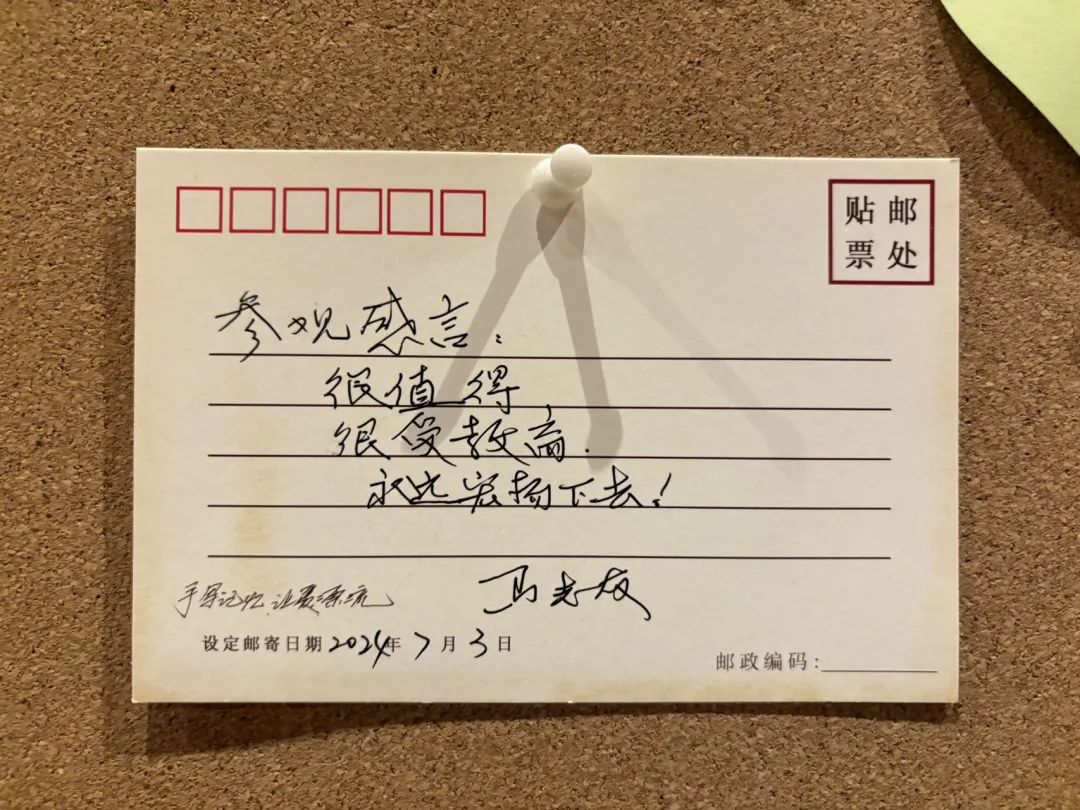 贴邮
票处
参观感言:
很值得,
很受教育.
永远宏扬下去!
马志友
手写记忆,让爱源流
设定邮寄日期2024年7月3日
邮政编码: